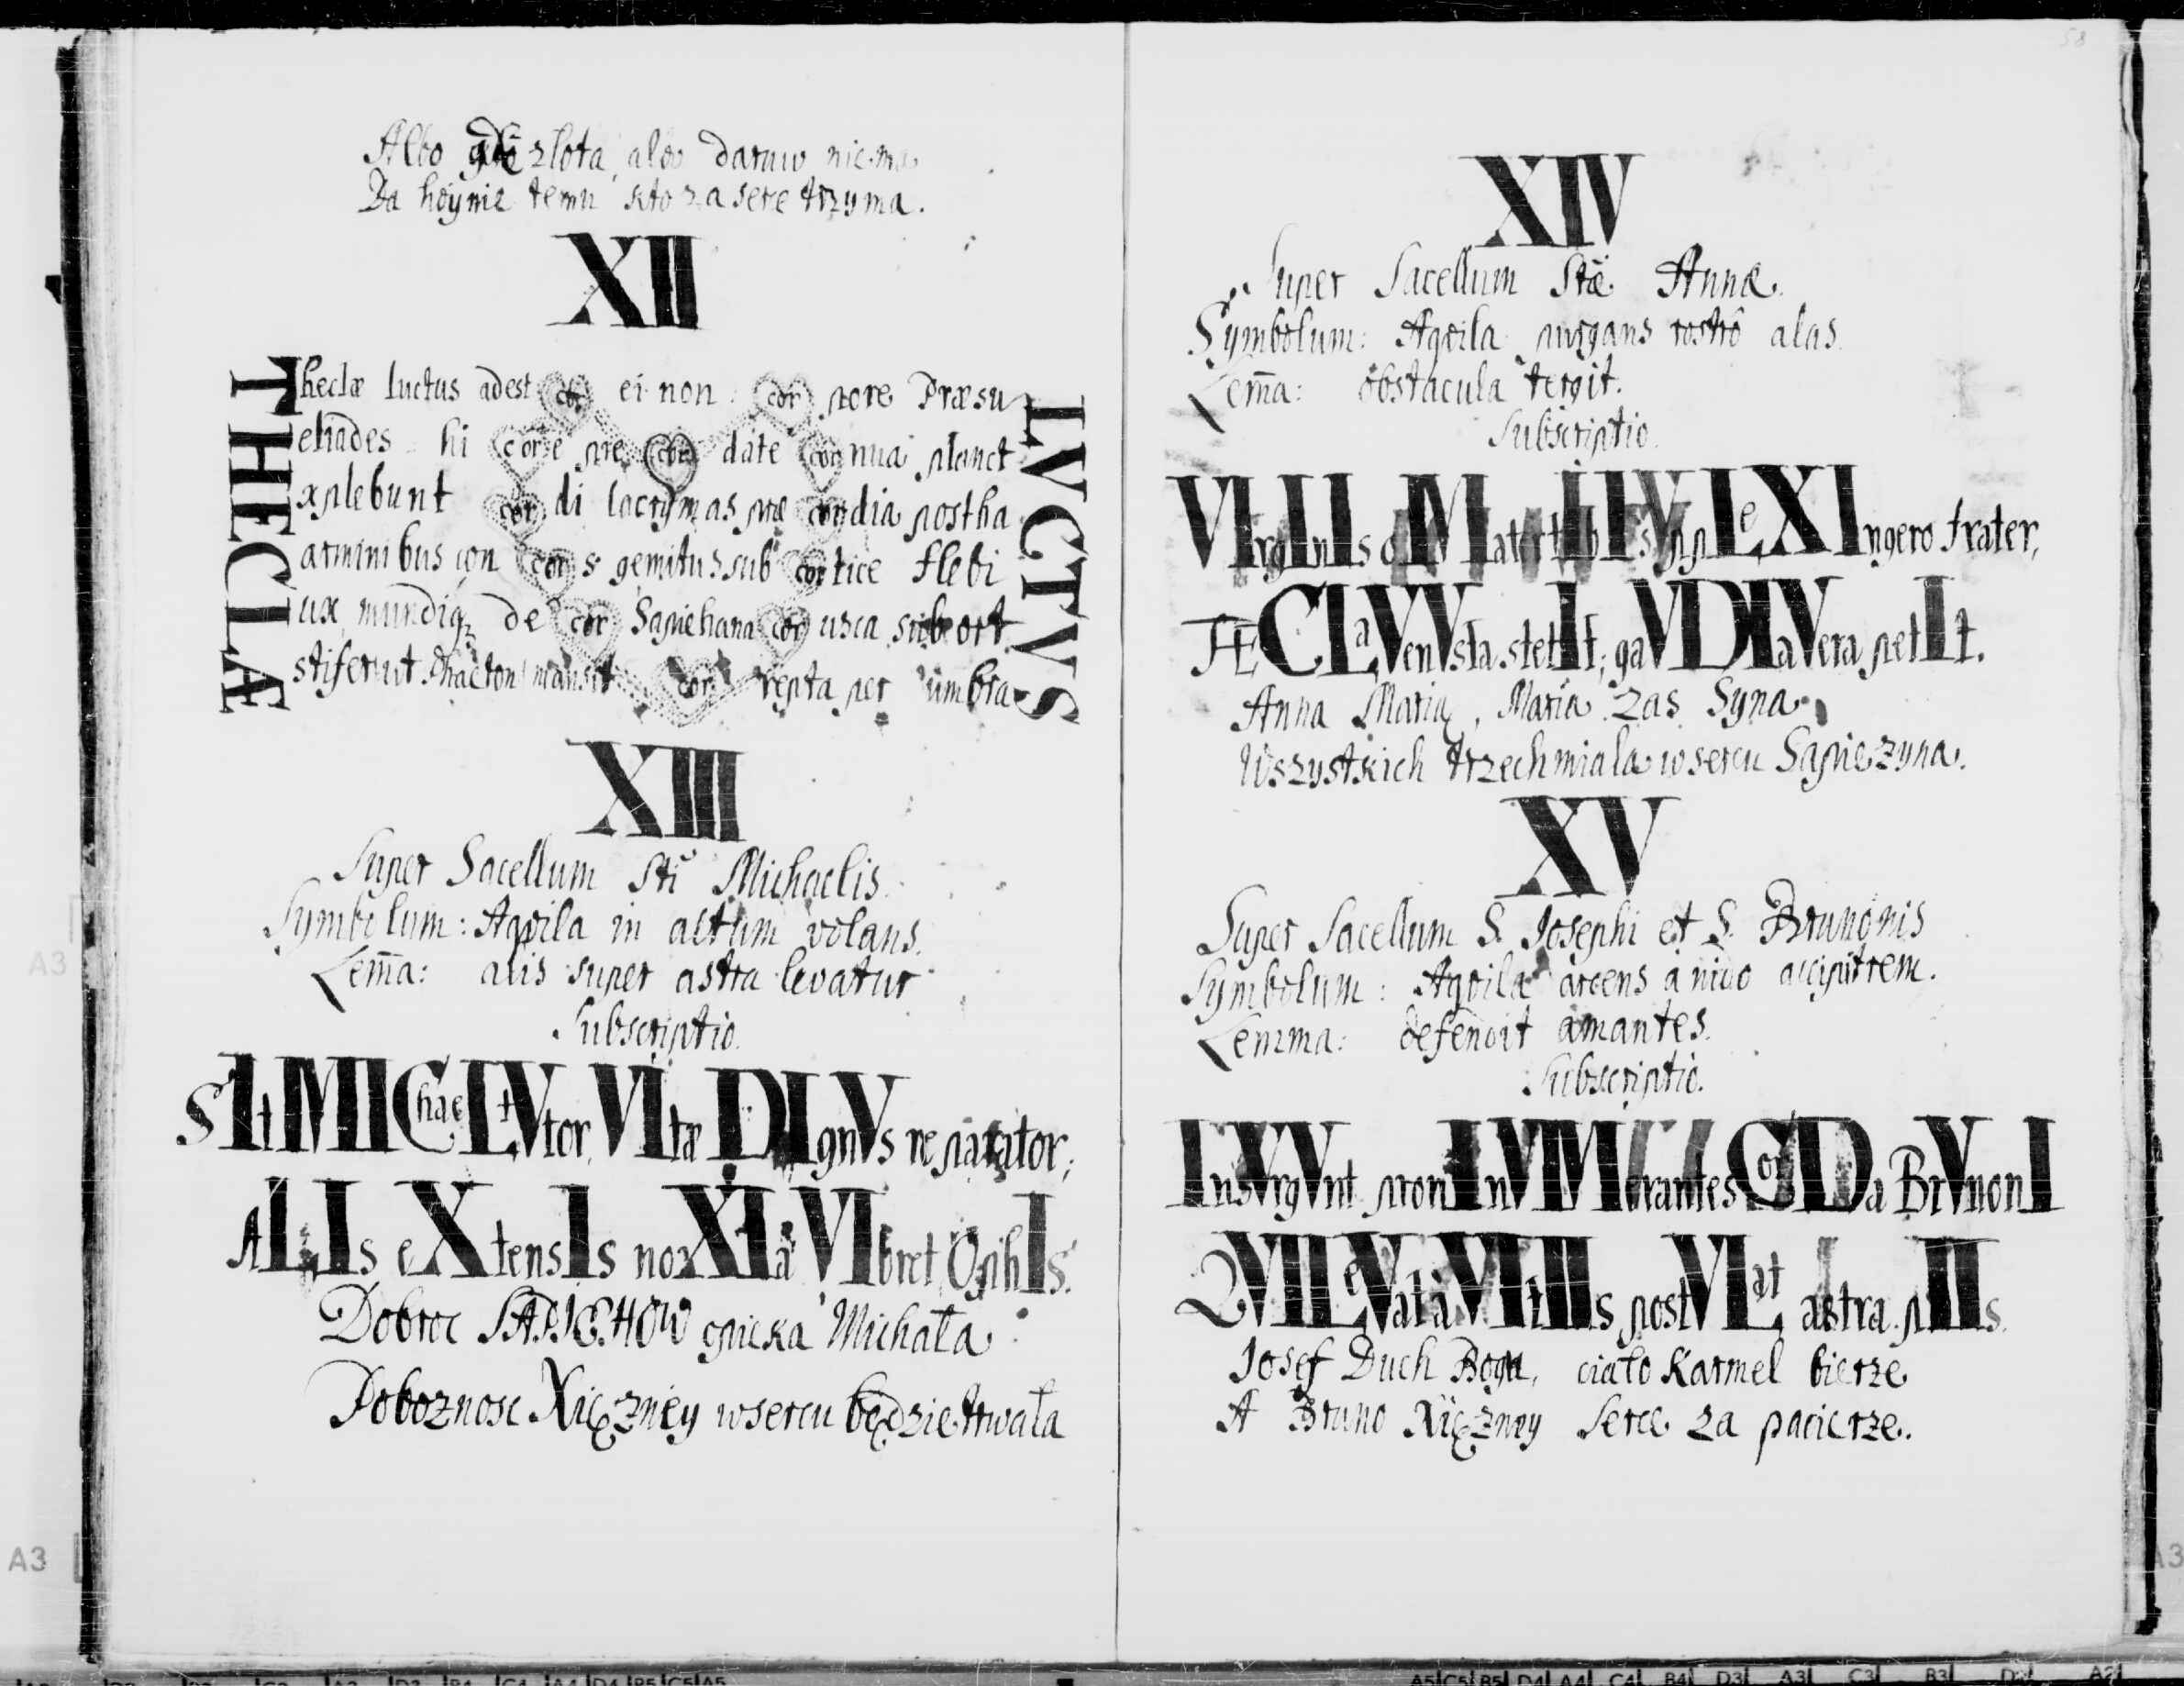 Albo gdie zlota, albo darow nie ma
Da hoynie temu kto za serce trzyma.
XII
THECLÆ
Theclæ luctus adest cor ei non cor pore Præsu L
Heliades hi cor e pre cor date cor nua planct V
Explebunt cor di lacrymas præ cor dia postha C
Carminibus con cor s gemitus sub cor tice flebi T
Lux mundiq; de cor Sapiehana cor usca sub ort V
Æstiferut Phaeton mansit cor repta per umbra S
LVCTVS
XIII
Super Sacellum Sti Michaelis.
Symbolum: Aqvila in altum volans.
Lem̄a: alis super astra levatur
Subscriptio.
SIt MIChaeL tVtor VItæ DIgnVs reparator;
ALIIs eXtensIs noXIa VIbret OphIs.
Dobroc SAPIEHOW opieka Michała
Poboznosc Xięzney w sercu będzie trwała
58
XIV
Super Sacellum Stæ Annæ.
Symbolum: Aqvila purgans rostrô alas.
Lem̄a: obstacula tergit.
Subscriptio.
ngero frater,
TECLa VenVsta stetIt; gaVDIa Vera petIt.
Anna Marią, Maria zas Syna
Wszystkich trzech miala w sercu Sapiezyna.
XV
Super Sacellum S. Josephi et S. Brunonis
Symbolum: Aqvila arcens a nido accipitrem.
Lemma: defendit amantes.
Subscriptio.
InsVrgVnt pronI nVMerantes Cor Da BrVnonI
QVI LeVata VItIIs postVLat astra pIIs.
Josef Duch Boga, ciało Karmel bierze
A Bruno Xięzney serce za pacierze.